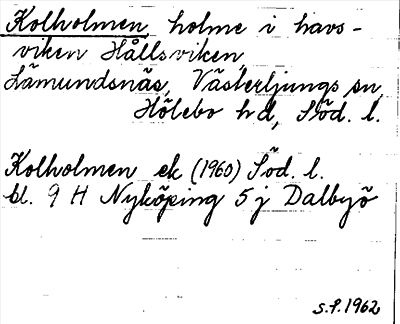 Kolholmen, holme i havs-
viken Hållsviken,
Lämundsnäs, Västerljungs sn,
Hölebo hd, Söd. l.
Kolholmen ek (1960) Söd. l.
bl. 9 H Nyköping 5 j Dalbyö
S.F. 1962